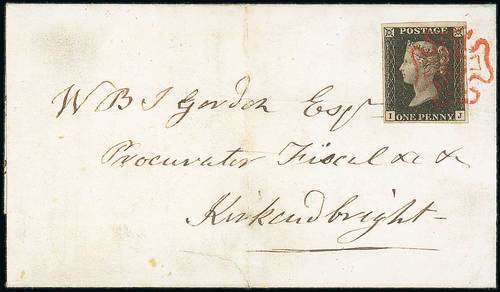 POSTAGE
I ONE PENNY J
W B S Gordon Esqr
Procurator Fiscal &c &c
Kirkcudbright